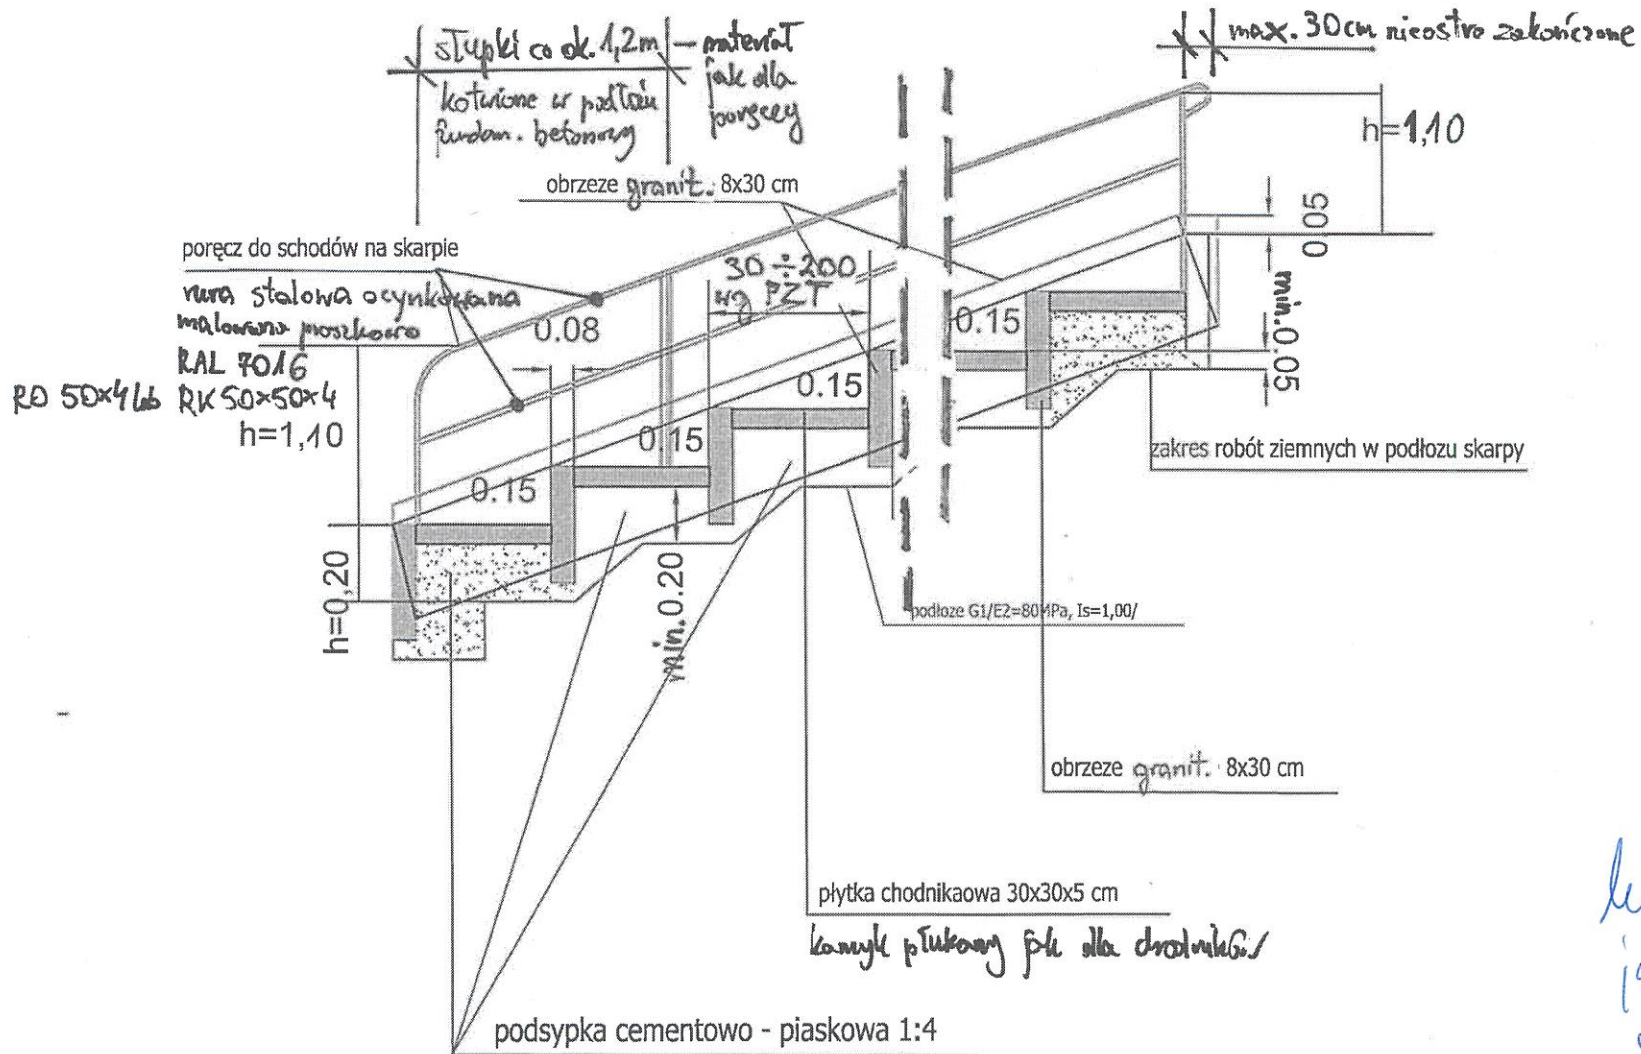 słupki co ok. 1,2m – materiał
jak dla
poręczy
kotwione w podłożu
fundam. betonowy
max. 30cm nieostro zakończone
h=1,10
obrzeze granit. 8x30 cm
poręcz do schodów na skarpie
rura stalowa ocynkowana
malowana proszkowo
RAL 7016
RO 50x4 lub RK 50x50x4
h=1,10
0.08
30÷200
wg PZT
0.15
0.15
0.15
0.15
0.05
min.0.05
zakres robót ziemnych w podłozu skarpy
h=0,20
min.0.20
podłoze G1/E2=80MPa, Is=1,00/
obrzeze granit. 8x30 cm
płytka chodnikaowa 30x30x5 cm
kamyk płukany jak dla chodników
podsypka cementowo - piaskowa 1:4